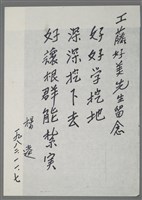 工藤好美先生留念
好好学挖地
深深挖下去
好讓根群能紮実
楊逵
一九八二.一一.七